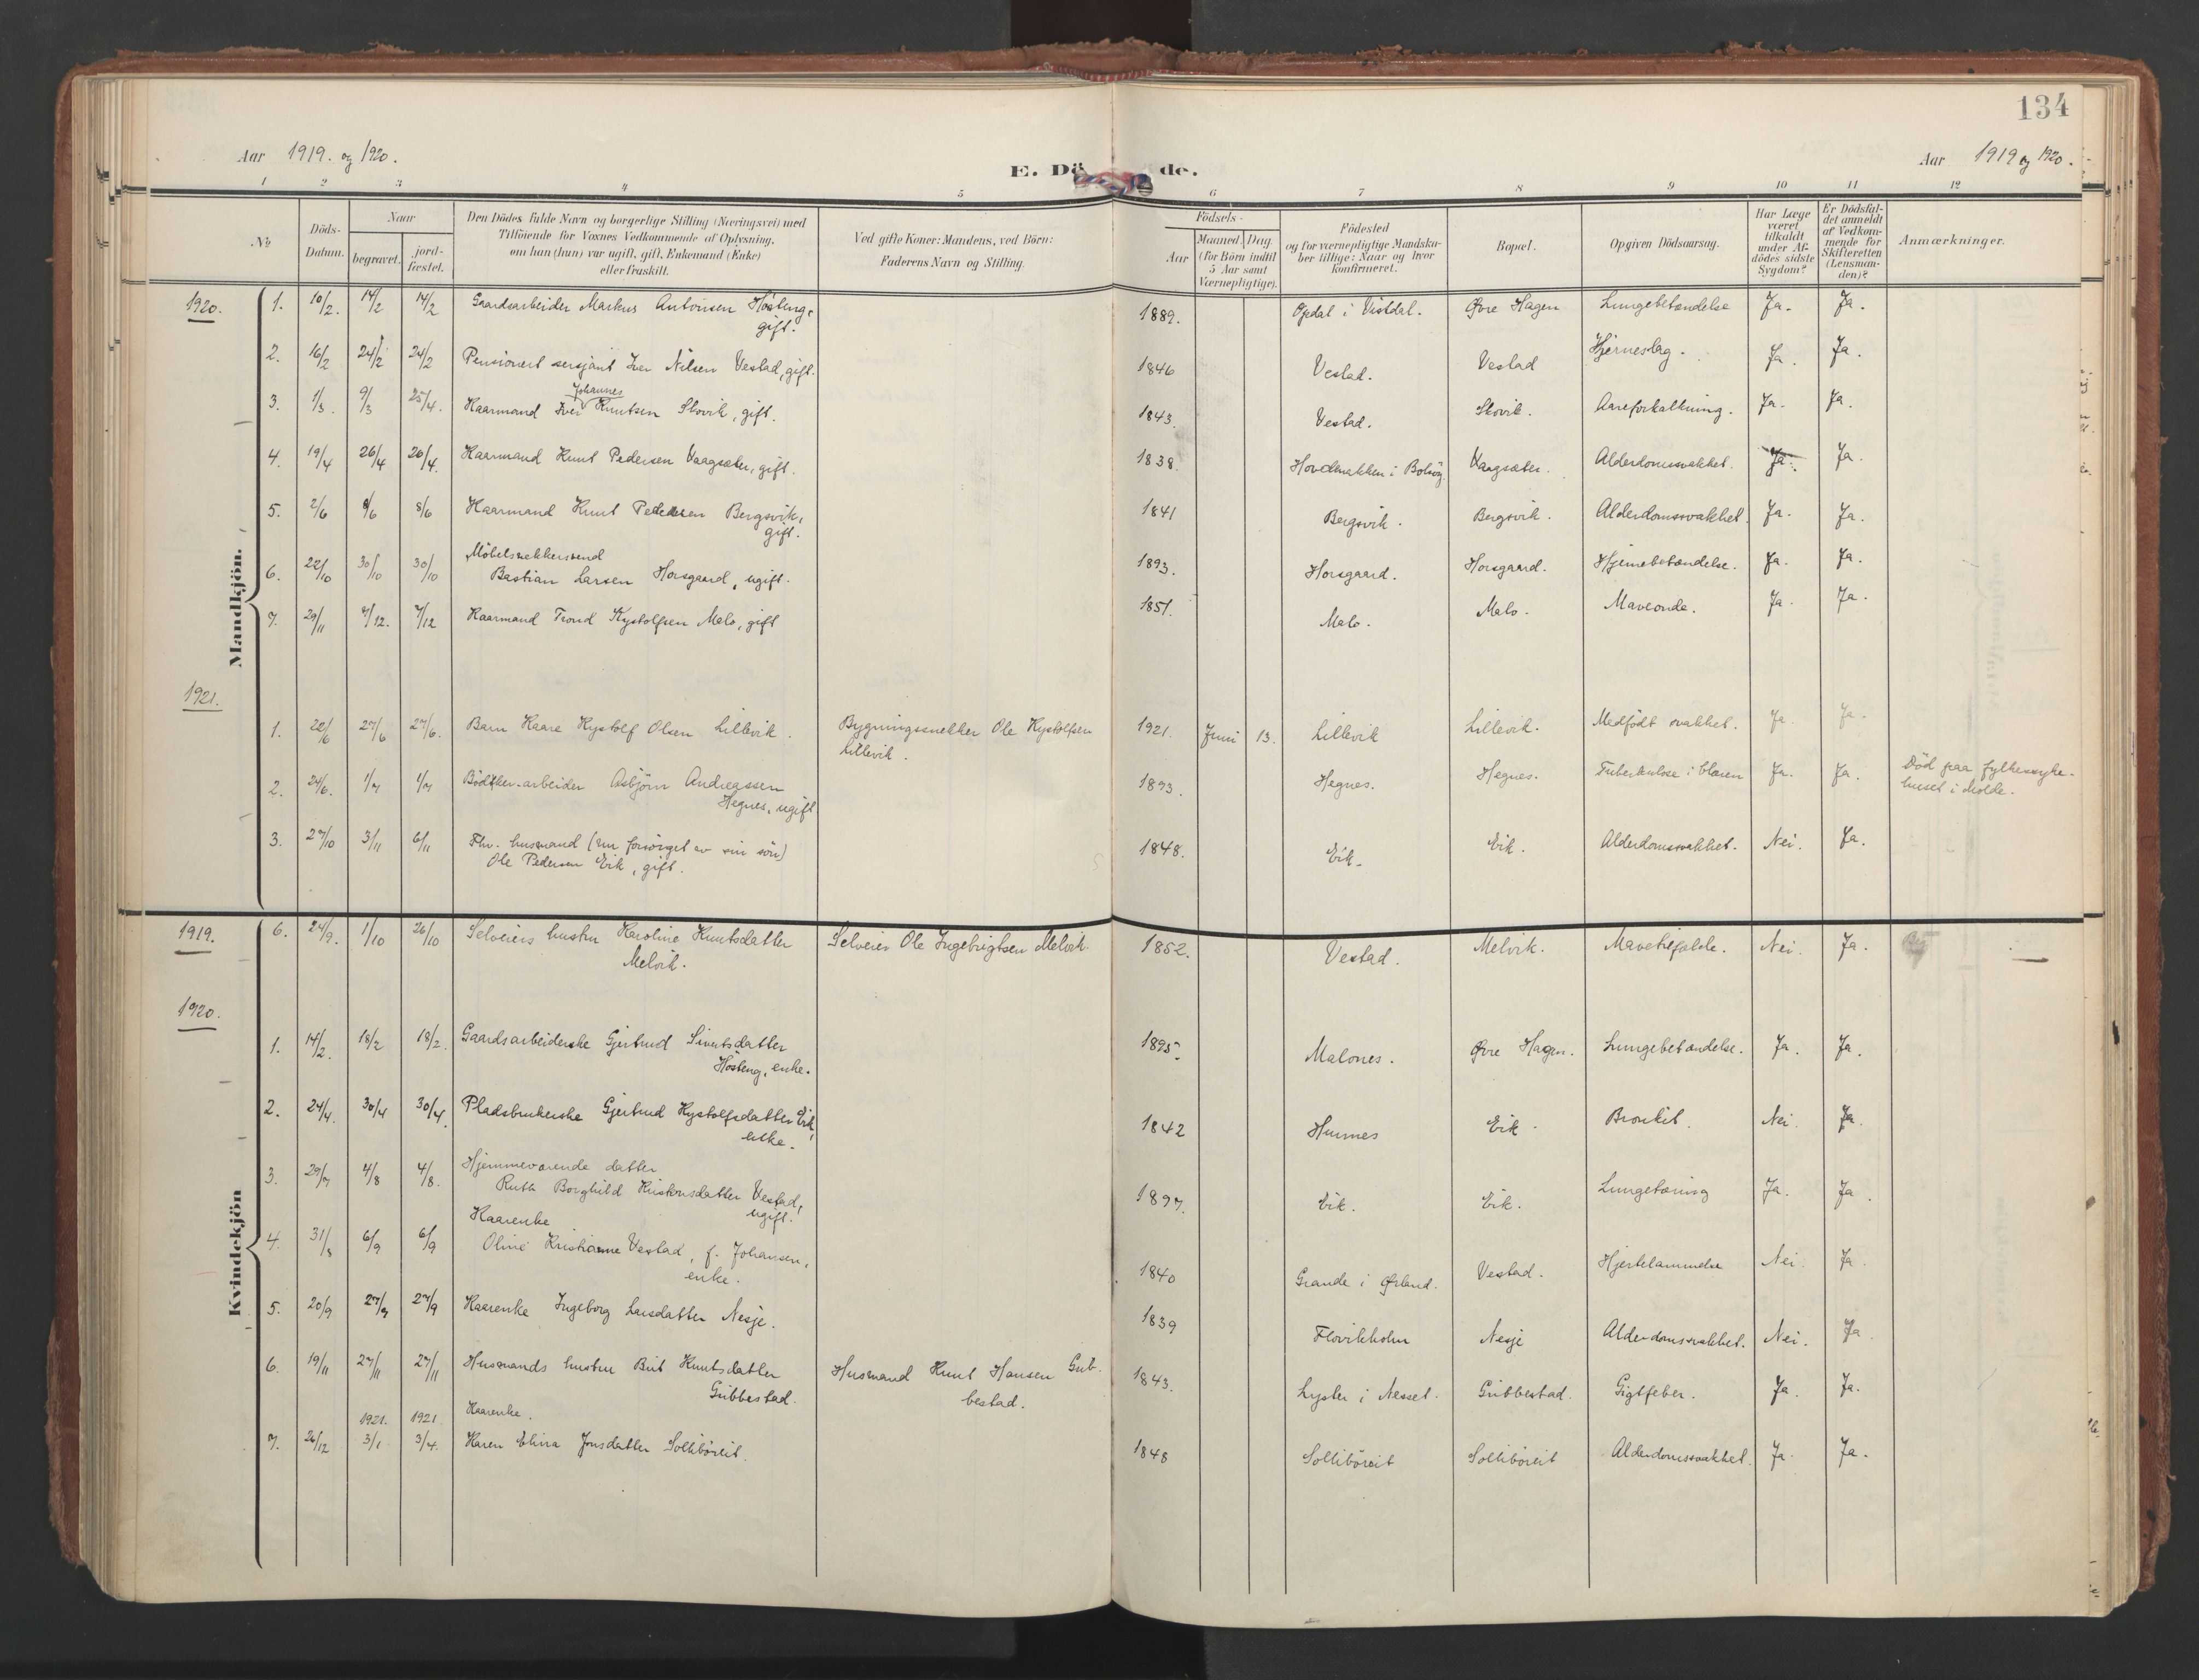 134
Aar 1919. og 1920.
E. Dö de.
Aar 1919 og 1920.
1 2 3 4 5 6 7 8 9 10 11 12
No
Döds-Datum.
Naar
begravet.
jord-fæstet.
Den Dödes fulde Navn og borgerlige Stilling (Næringsvei) med
Tilföiende for Voxnes Vedkommende af Oplysning,
om han (hun) var ugift, gift, Enkemand (Enke)
eller fraskilt.
Ved gifte Koner: Mandens, ved Börn:
Faderens Navn og Stilling.
Födsels-
Aar
Maaned Dag
(for Börn indtil
5 Aar samt
Værnepligtige).
Födested
og for værnepligtige Mandska-
ber tillige: Naar og hvor
konfirmeret.
Bopæl.
Opgiven Dödsaarsag.
Har Læge
været
tilkaldt
under Af-
dödes sidste
Sygdom?
Er Dödsfal-
det anmeldt
af Vedkom-
mende for
Skifteretten
(Lensman-
den)?
Anmærkninger.
Mandkjön.
1920.
1. 10/2. 14/2 14/2 Gaardsarbeider Markus Antonsen Hösteng, gift. 1889. Opdal i Vistdal. Øvre Hagen Lungebetændelse Ja. Ja.
2. 16/2 24/2 24/2 Pensionert sersjant Iver Nilsen Vestad, gift. 1846 Vestad. Vestad Hjerneslag. Ja. Ja.
3. 1/3. 9/3 25/4. Kaarmand Iver Johannes Knutsen Skovik, gift. 1843. Vestad. Skovik. Aareforkalkning. Ja. Ja.
4. 19/4 26/4 26/4. Kaarmand Knut Pedersen Vaagsæter, gift. 1838. Hovdenakken i Bolsöy Vaagsæter. Alderdomssvakhet. Ja. Ja.
5. 2/6 8/6 8/6 Kaarmand Knut Pedersen Bergsvik, gift. 1841 Bergsvik. Bergsvik. Alderdomssvakhet. Ja. Ja.
6. 22/10 30/10 30/10 Möbelsnekkersvend
Bastian Larsen Horsgaard, ugift. 1893. Horsgaard. Horsgaard. Hjernebetændelse. Ja. Ja.
7. 29/11 7/12. 7/12 Kaarmand Trond Kystolfsen Malo, gift 1851. Malo. Malo. Maveonde. Ja. Ja.
1921.
1. 22/6 27/6 27/6. Barn Kaare Kystolf Olsen Lillevik. Bygningssnekker Ole Kystolfsen
Lillevik. 1921. Juni 13. Lillevik Lillevik. Medfödt svakhet. Ja. Ja.
2. 24/6. 1/7 1/7 Bödker-arbeider Asbjörn Andreassen
Hegnes, ugift 1893. Hegnes. Hegnes. Tuberkulose i blæren Ja. Ja. Död paa fylkessyke-
huset i Molde.
3. 27/10 3/11 6/11 Fhv. husmand (nu forsörget av sin sön)
Ole Pedersen Eik, gift. 1848. Eik. Eik. Alderdomssvakhet. Nei. Ja.
Kvindekjön
1919.
6. 24/9. 1/10 26/10 Selveiers hustru Karoline Knutsdatter
Melvik. Selveier Ole Ingebrigtsen Melvik. 1852. Vestad. Melvik. Mavetilfælde. Nei. Ja.
1920.
1. 14/2. 18/2 18/2. Gaardsarbeiderske Gjertrud Sivertsdatter
Hösteng, enke. 1895. Malones. Øvre Hagen. Lungebetændelse. Ja. Ja.
2. 24/4. 30/4 30/4. Pladsbrukerske Gjertrud Kystolfsdatter Eik,
enke. 1842 Husnes Eik. Bronkit. Nei. Ja.
3. 29/7 4/8 4/8. Hjemmeværende datter
Ruth Borghild Kristensdatter Vestad,
ugift. 1897. Eik. Eik. Lungetæring Ja. Ja.
4. 31/8 6/9 6/9 Kaarenke
Oline Kristianne Vestad, f. Johansen,
enke. 1840 Grande i Ørland. Vestad. Hjertelammelse Nei. Ja.
5. 20/9 27/9 27/9 Kaarenke Ingeborg Larsdatter Nesje. 1839 Flovikholm Nesje Alderdomssvakhet. Nei. Ja
6. 19/11 27/11 27/11 Husmands hustru Brit Knutsdatter
Gribbestad. Husmand Knut Hansen Grib-
bestad. 1843. Lyster i Nesset. Gribbestad. Gigtfeber. Ja. Ja.
1921. 1921. Kaarenke.
7. 26/12 3/1 3/4. Karen Elina Jonsdatter Solliböreit. 1848 Solliböreit Solliböreit Alderdomssvakhet. Ja. Ja.